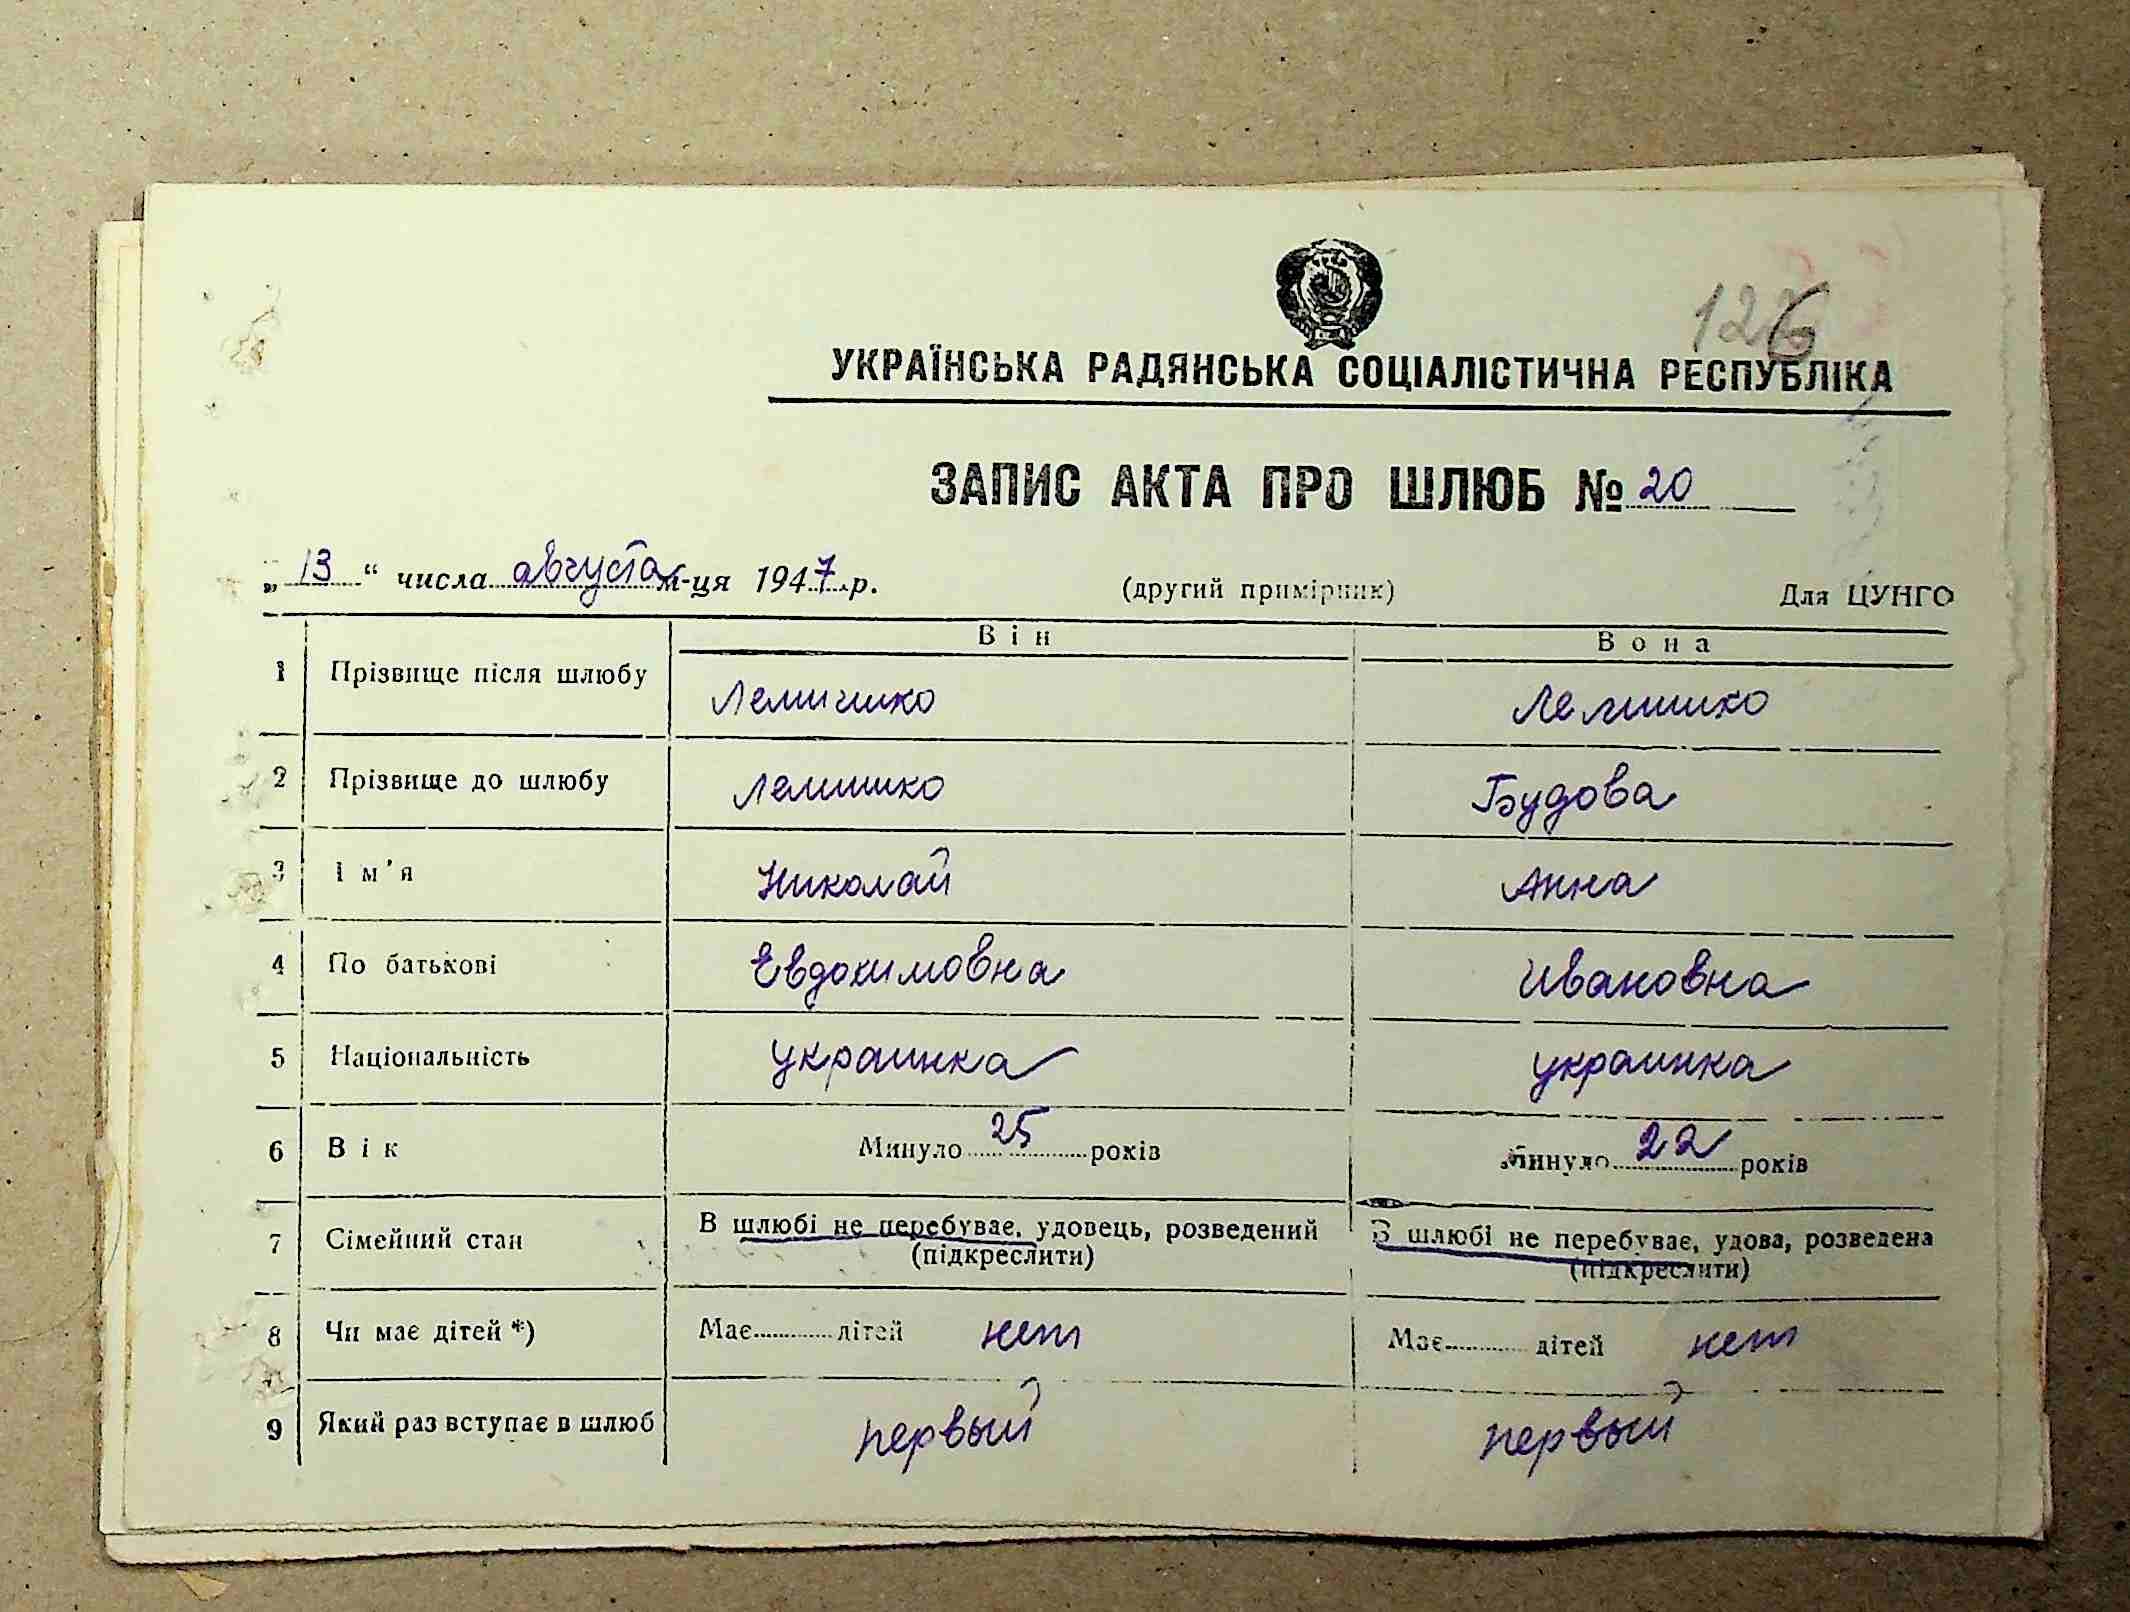 126
УКРАЇНСЬКА РАДЯНСЬКА СОЦІАЛІСТИЧНА РЕСПУБЛІКА
ЗАПИС АКТА ПРО ШЛЮБ № 20
„13“ числа августа м-ця 1947 р. (другий примірник) Для ЦУНГО
Він Вона
1 Прізвище після шлюбу Лемишко Лемишко
2 Прізвище до шлюбу Лемишко Будова
3 Ім'я Николай Анна
4 По батькові Евдокимовна Ивановна
5 Національність украинка украинка
6 Вік Минуло 25 років Минуло 22 років
7 Сімейний стан В шлюбі не перебуває, удовець, розведений В шлюбі не перебуває, удова, розведена
(підкреслити) (підкреслити)
8 Чи має дітей *) Має дітей нет Має дітей нет
9 Який раз вступає в шлюб первый первый